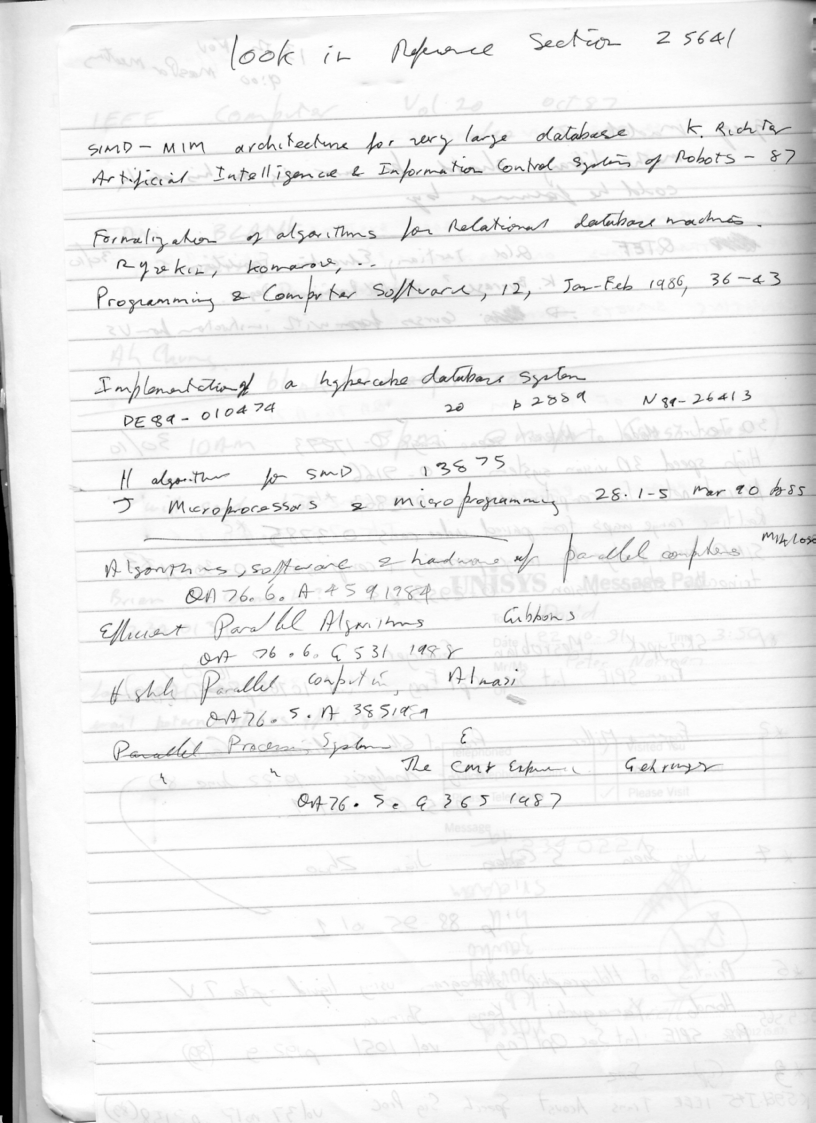 look in Reference Section Z 5641
SIMD - MIM architecture for very large database K. Richter
Artificial Intelligence & Information Control Systems of Robots - 87
Formalization of algorithms for Relational database machines.
Ryvkin, Komarov, ..
Programming & Computer Software, 12, Jan-Feb 1986, 36-43
Implementation of a hypercube database system
DE89-010474 20 p2889 N89-26413
H algorithm for SIMD 13875
J Microprocessors & microprogramming 28. 1-5 Mar 90 p85
Algorithms, software & hardware of parallel computers Miklosko
QA 76.6. A 459 1984
Efficient Parallel Algorithms Gibbons
QA 76.6. G 531 1988
Highly Parallel computing, Almasi
QA 76.5. A 385 1989
Parallel Processing System E
" " The Cm* Experience Gehringer
QA 76.5. G 365 1987